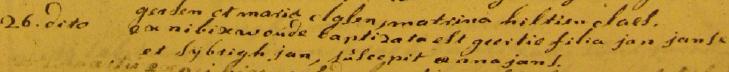 gersen et maria Aglen, matrina hiltien claes.
26. dito ex nibixwoude baptizata est guertie filia jan janse
et sybrigh jan, suscepit anna jans.